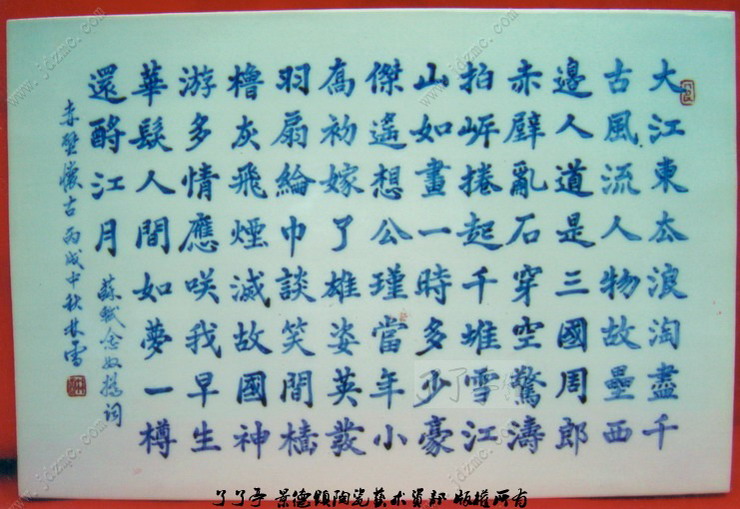 大江東厺浪淘盡千
古風流人物故壘西
邊人道是三國周郎
赤壁亂石穿空驚濤
拍岸捲起千堆雪江
山如畫一時多少豪
傑遙想公瑾當年小
喬初嫁了雄姿英發
羽扇綸巾談笑間檣
櫓灰飛煙滅故國神
游多情應咲我早生
華髮人間如夢一樽
還酹江月
蘇軾念奴嬌詞
赤壁懷古丙戌中秋林雪
了了亭 景德鎮陶瓷藝术資部 版權所有
www.jdzmc.com